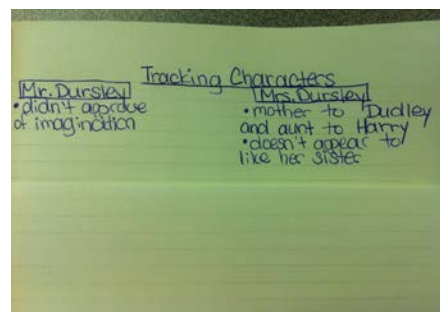 Tracking Characters
Mr. Dursley
•didn't approve
of imagination
Mrs. Dursley
•mother to Dudley
and aunt to Harry
•doesn't appear to
like her sister